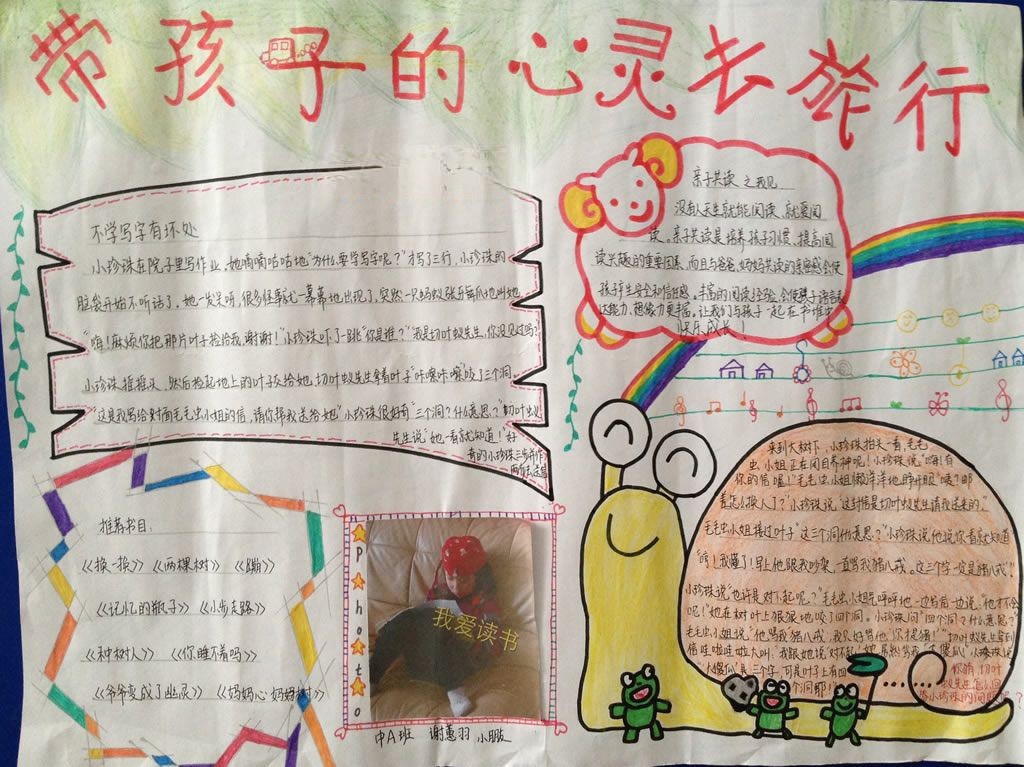 带孩子的心灵去旅行
不学写字有坏处
小珍珠在院子里写作业,她嘀嘀咕咕地"为什么要学写字呢?"才写了三行,小珍珠的
脑袋开始不听话了,她一发呆呀,很多怪事就一幕幕地出现了,突然一只蚂蚁张牙舞爪地叫她
"嗨!麻烦你把那片叶子捡给我,谢谢!"小珍珠吓了一跳"你是谁?""我是切叶蚁先生,你没见过吗?"
小珍珠摇摇头,然后捡起地上的叶子交给她,切叶蚁先生拿着叶子"咔嚓咔嚓"咬了三个洞
"这是我写给对面毛毛虫小姐的信,请你帮我送给她"小珍珠很好奇"三个洞?什么意思?"切叶蚁
先生说"她一看就知道!"好
奇的小珍珠三步并作
亲子共读 之我见
没有人天生就能阅读,就爱阅
读。亲子共读是培养孩子习惯、提高阅
读兴趣的重要因素,而且与爸爸、妈妈共读的亲密感会使
孩子产生安全和信任感。丰富的阅读经验,会使孩子语言表
达能力、想象力更丰富。让我们与孩子一起在书堆中
快乐成长!
来到大树下,小珍珠抬头一看,毛毛
虫小姐正在闭目养神呢!小珍珠说"嗨!有
你的信喔!"毛毛虫小姐懒洋洋地睁开眼"咦?邮
差怎么换人了?"小珍珠说"这封信是切叶蚁先生请我送来的。"
毛毛虫小姐接过叶子"这三个洞什么意思?"小珍珠说"他说你看就知道
"哼!我懂了!早上他跟我吵架,一直骂我猪八戒。这三个字一定是猪八戒!"
小珍珠说"也许是对不起呢?"毛毛虫小姐气呼呼地一边写着一边说"他才不会
呢!"她在树叶上狠狠地咬了四个洞。小珍珠问"四个洞?什么意思?
毛毛虫小姐说"他骂我猪八戒,我只好骂他'你是猪!'"切叶蚁先生拿到
信哇啦哇啦大叫"我跟她说对不起,她居然骂我大傻瓜!"小珍珠说
推荐书目:
《换一换》 《两棵树》 《蹦》
《记忆的瓶子》 《小步走路》
《种树人》 《你睡不着吗》
《爷爷变成了幽灵》 《妈妈心 妈妈树》
photo
我爱读书
中A班 谢蕙羽 小脚